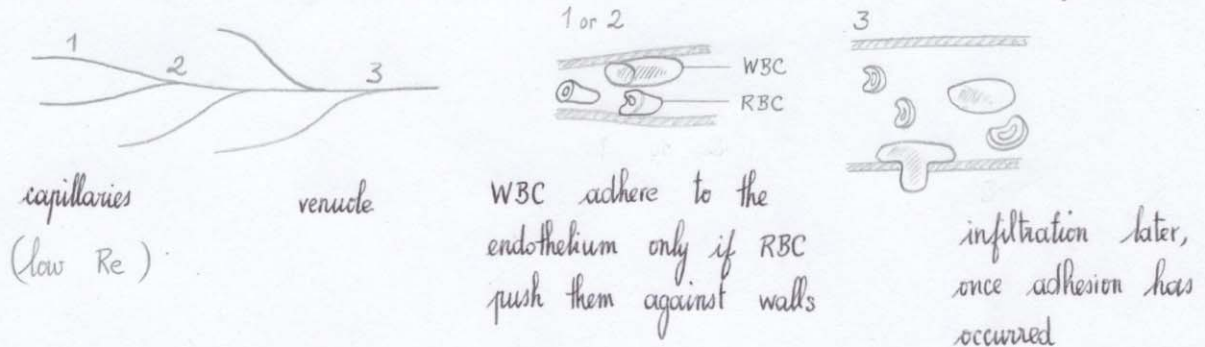 1
2
3
capillaries
venucle
(low Re)
1 or 2
WBC
RBC
WBC adhere to the
endothelium only if RBC
push them against walls
3
infiltration later,
once adhesion has
occurred